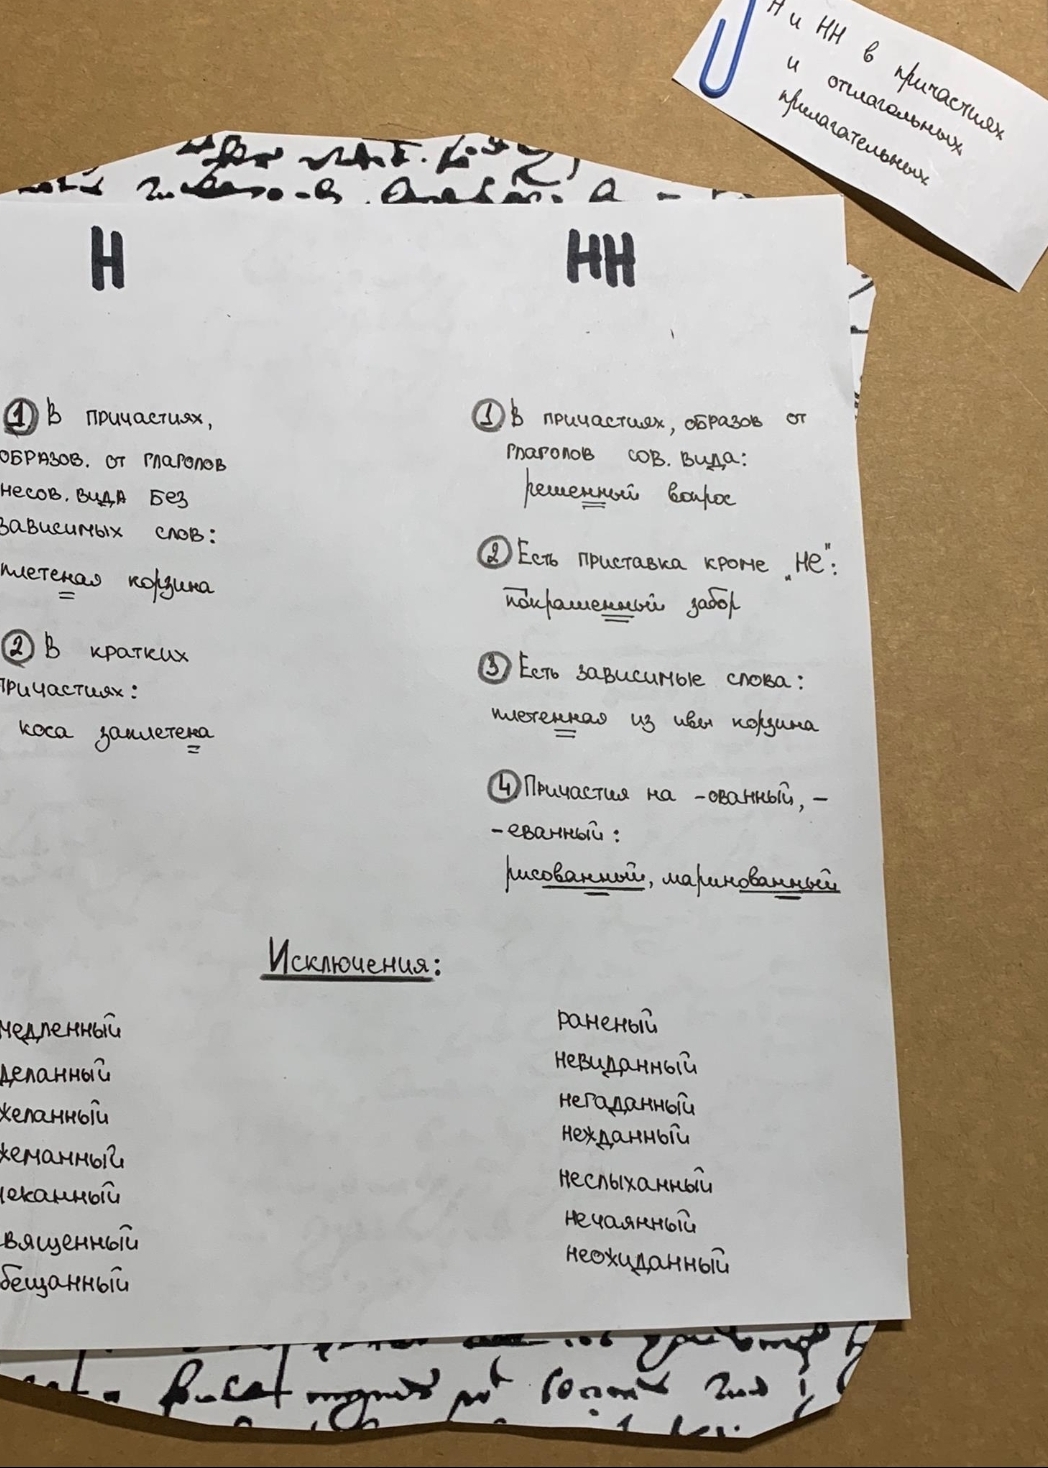 Н и НН в причастиях
и отглагольных
прилагательных
Н
① В причастиях,
образов. от глаголов
несов. вида без
зависимых слов:
плетеная корзина
② В кратких
причастиях:
коса заплетена
НН
① В причастиях, образов от
глаголов сов. вида:
решенный вопрос
② Есть приставка кроме „не":
покрашенный забор
③ Есть зависимые слова:
плетенная из ивы корзина
④ Причастия на -ованный, -
-еванный:
рисованный, маринованный
Исключения:
медленный
деланный
желанный
жеманный
чеканный
священный
обещанный
раненый
невиданный
негаданный
нежданный
неслыханный
нечаянный
неожиданный